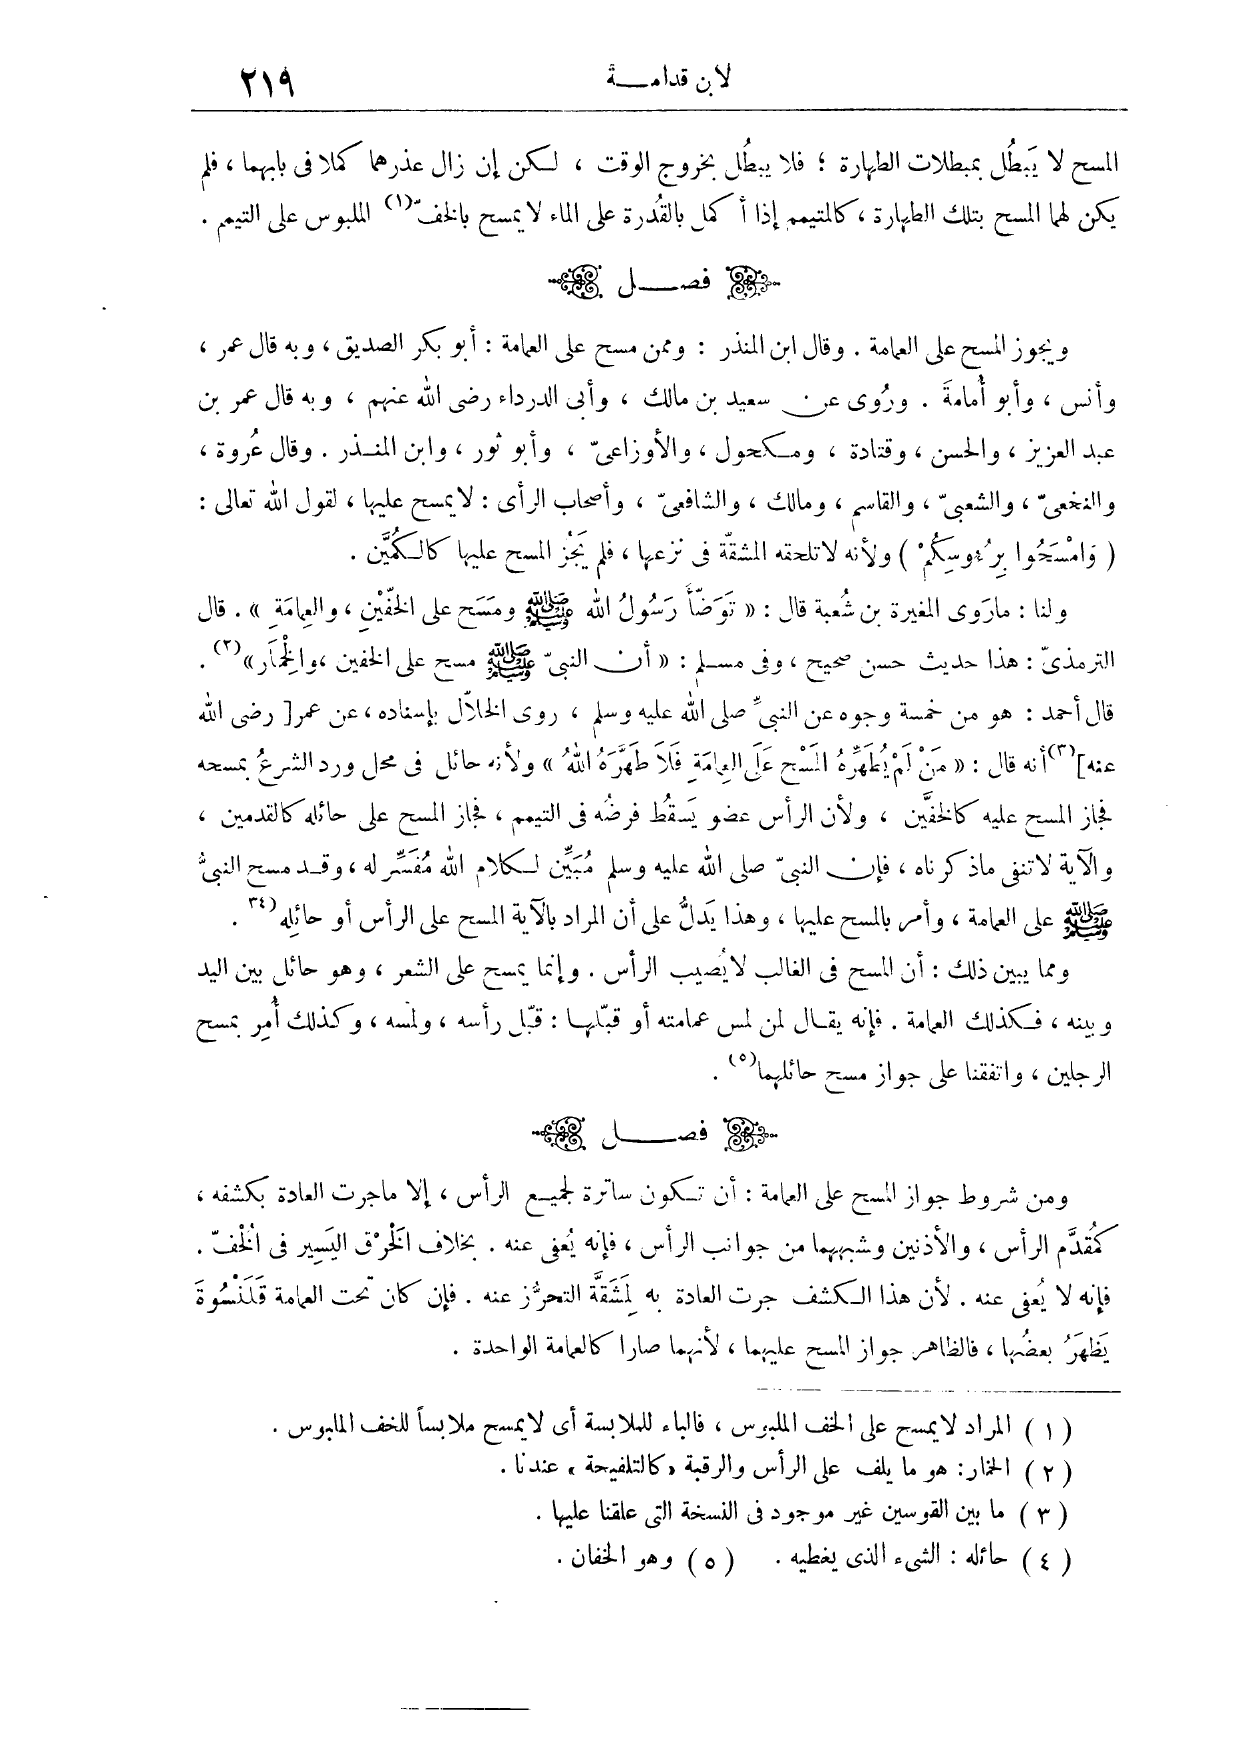 لابن قدامـــة ٢١٩
المسح لا يَبطُل بمبطلات الطهارة ؛ فلا يبطُل بخروج الوقت ، لكن إن زال عذرهما كملا فى بابهما ، فلم
يكن لهما المسح بتلك الطهارة ، كالمتيمم إذا أكمل بالقُدرة على الماء لا يمسح بالخفّ(١) الملبوس على التيمم .
فصـــل
ويجوز المسح على العمامة . وقال ابن المنذر : وممن مسح على العمامة : أبو بكر الصديق ، وبه قال عمر ،
وأنس ، وأبو أُمامةَ . ورُوى عن سعيد بن مالك ، وأبى الدرداء رضى الله عنهم ، وبه قال عمر بن
عبد العزيز ، والحسن ، وقتادة ، ومكحول ، والأوزاعىّ ، وأبو ثور ، وابن المنـذر . وقال عُروة ،
والنخعىّ ، والشعبىّ ، والقاسم ، ومالك ، والشافعىّ ، وأصحاب الرأى : لا يمسح عليها ، لقول الله تعالى :
( وَامْسَحُوا بِرُءُوسِكُمْ ) ولأنه لا تلحقه المشقّة فى نزعها ، فلم يَجُز المسح عليها كالكُمَّين .
ولنا : ماروى المغيرة بن شُعبة قال : « تَوَضّأَ رَسُولُ الله ﷺ ومَسَح على الخفّيْنِ ، والعِمامَةِ » . قال
الترمذىّ : هذا حديث حسن صحيح ، وفى مسلم : « أن النبىّ ﷺ مسح على الخفين ،والِخْمَار»(٢) .
قال أحمد : هو من خمسة وجوه عن النبىِّ صلى الله عليه وسلم ، روى الخلاّل بإسناده ، عن عمر[ رضى الله
عنه](٣) أنه قال : « مَنْ لَمْ يُطَهِّرْهُ الْمَسْحُ عَلَى العِمامَةِ فَلَا طَهَّرَهُ اللهُ » ولأنه حائل فى محل ورد الشرعُ بمسحه
فجاز المسح عليه كالخفَّين ، ولأن الرأس عضو يَسقُط فرضُه فى التيمم ، فجاز المسح على حائله كالقدمين ،
والآية لا تنفى ماذكرناه ، فإن النبىّ صلى الله عليه وسلم مُبَيِّن لكلام الله مُفَسِّر له ، وقـد مسح النبىُّ
ﷺ على العمامة ، وأمر بالمسح عليها ، وهذا يَدلُّ على أن المراد بالآية المسح على الرأس أو حائلِه(٣٤ .
ومما يبين ذلك : أن المسح فى الغالب لا يُصيب الرأس . وإنما يمسح على الشعر ، وهو حائل بين اليد
وبينه ، فكذلك العمامة . فإنه يقـال لمن لمس عمامته أو قبّلـها : قبّل رأسه ، ولمسه ، وكذلك أُمِر بمسح
الرجلين ، واتفقنا على جواز مسح حائلهما(٥) .
فصـــل
ومن شروط جواز المسح على العمامة : أن تكون ساترة لجميع الرأس ، إلا ماجرت العادة بكشفه ،
كمُقدَّم الرأس ، والأذنين وشبههما من جوانب الرأس ، فإنه يُعفى عنه . بخلاف الخَرْق اليَسِير فى الْخُفّ .
فإنه لا يُعفى عنه . لأن هذا الكشف جرت العادة به لِمَشَقَّة التحرُّز عنه . فإن كان تحت العمامة قَلَنْسُوةَ
يَظهَرُ بعضُها ، فالظاهر جواز المسح عليهما ، لأنهما صارا كالعمامة الواحدة .
( ١ ) المراد لا يمسح على الخف الملبوس ، فالباء للملابسة أى لا يمسح ملابساً للخف الملبوس .
( ٢ ) الخمار: هو ما يلف على الرأس والرقبة «كالتلفيحة» عندنا .
( ٣ ) ما بين القوسين غير موجود فى النسخة التى علقنا عليها .
( ٤ ) حائله : الشىء الذى يغطيه . ( ٥ ) وهو الخفان .